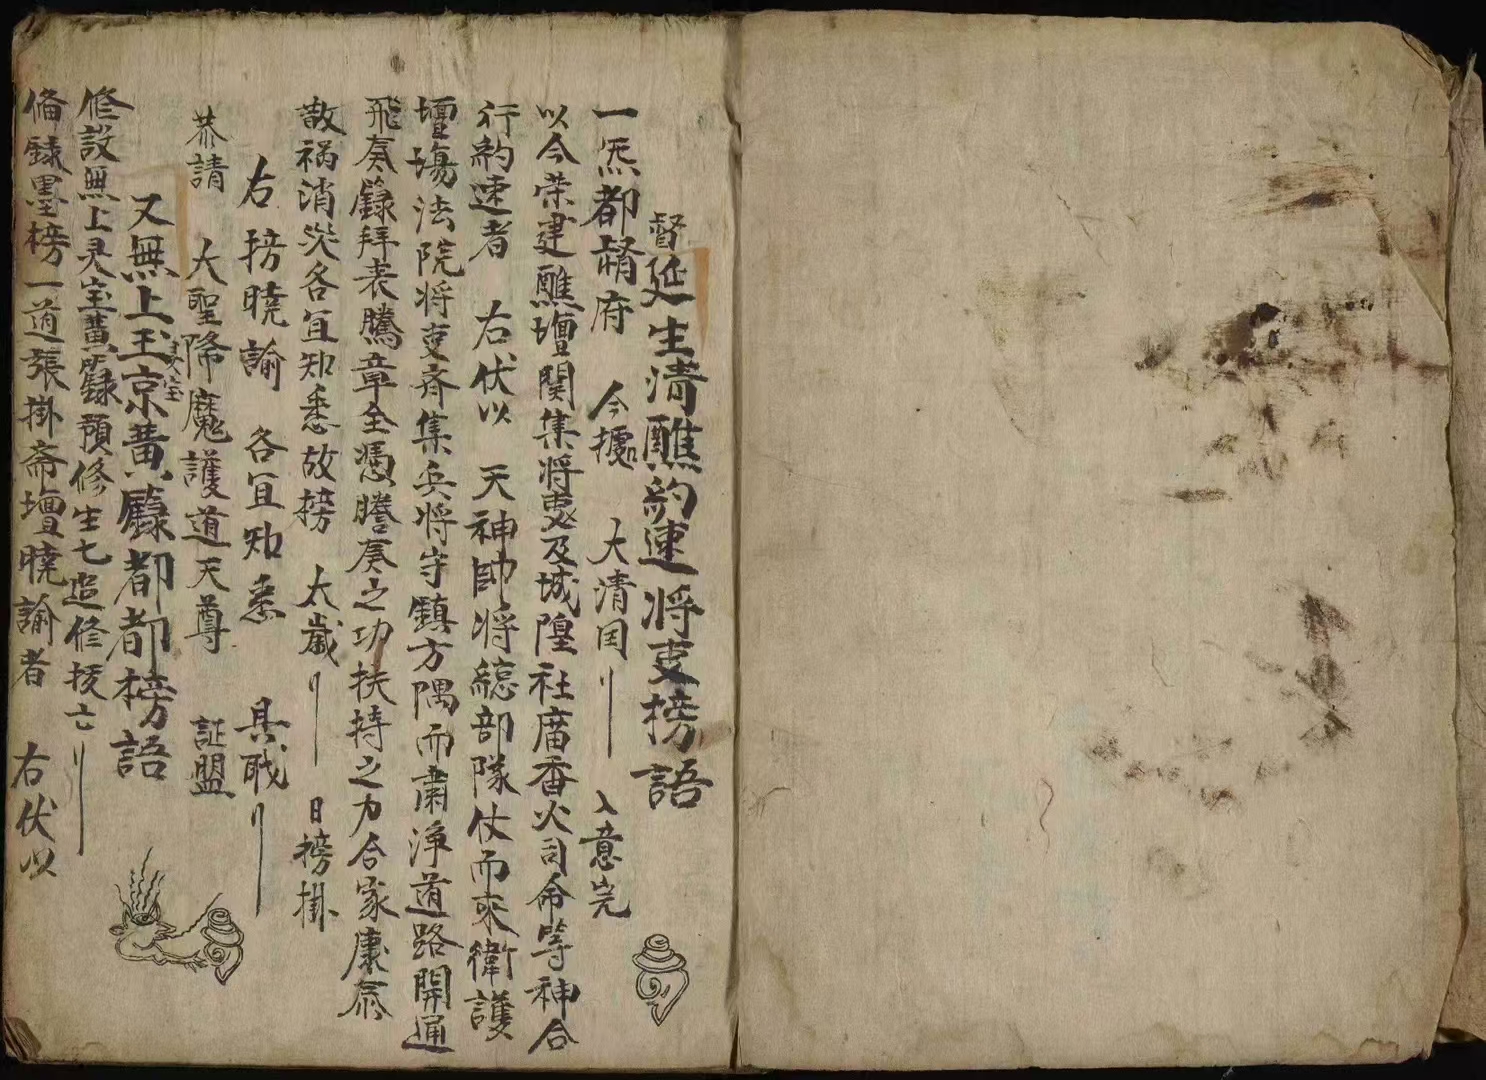 督延生清醮約速将吏榜語
一炁都督府 今據 大清国 入意完
以今荣建醮壇関集将吏及城隍社庙香火司命等神合
行約速者 右伏以 天神帥将總部隊仗而來衛護
壇場法院将吏齊集兵将守鎮方隅而肅淨道路開通
飛奏籙拜表騰章全憑謄奏之功扶持之力合家康泰
敨祸消灾各宜知悉故榜 太歲 日榜掛
右榜曉諭 各宜知悉 具戝
恭請 大聖降魔護道天尊 証盟
又無上玉京黄籙都都榜語
灵宝
修設無上灵宝黄籙預修生七追修拔亡
俻録墨榜一道張掛斋壇曉諭者 右伏以